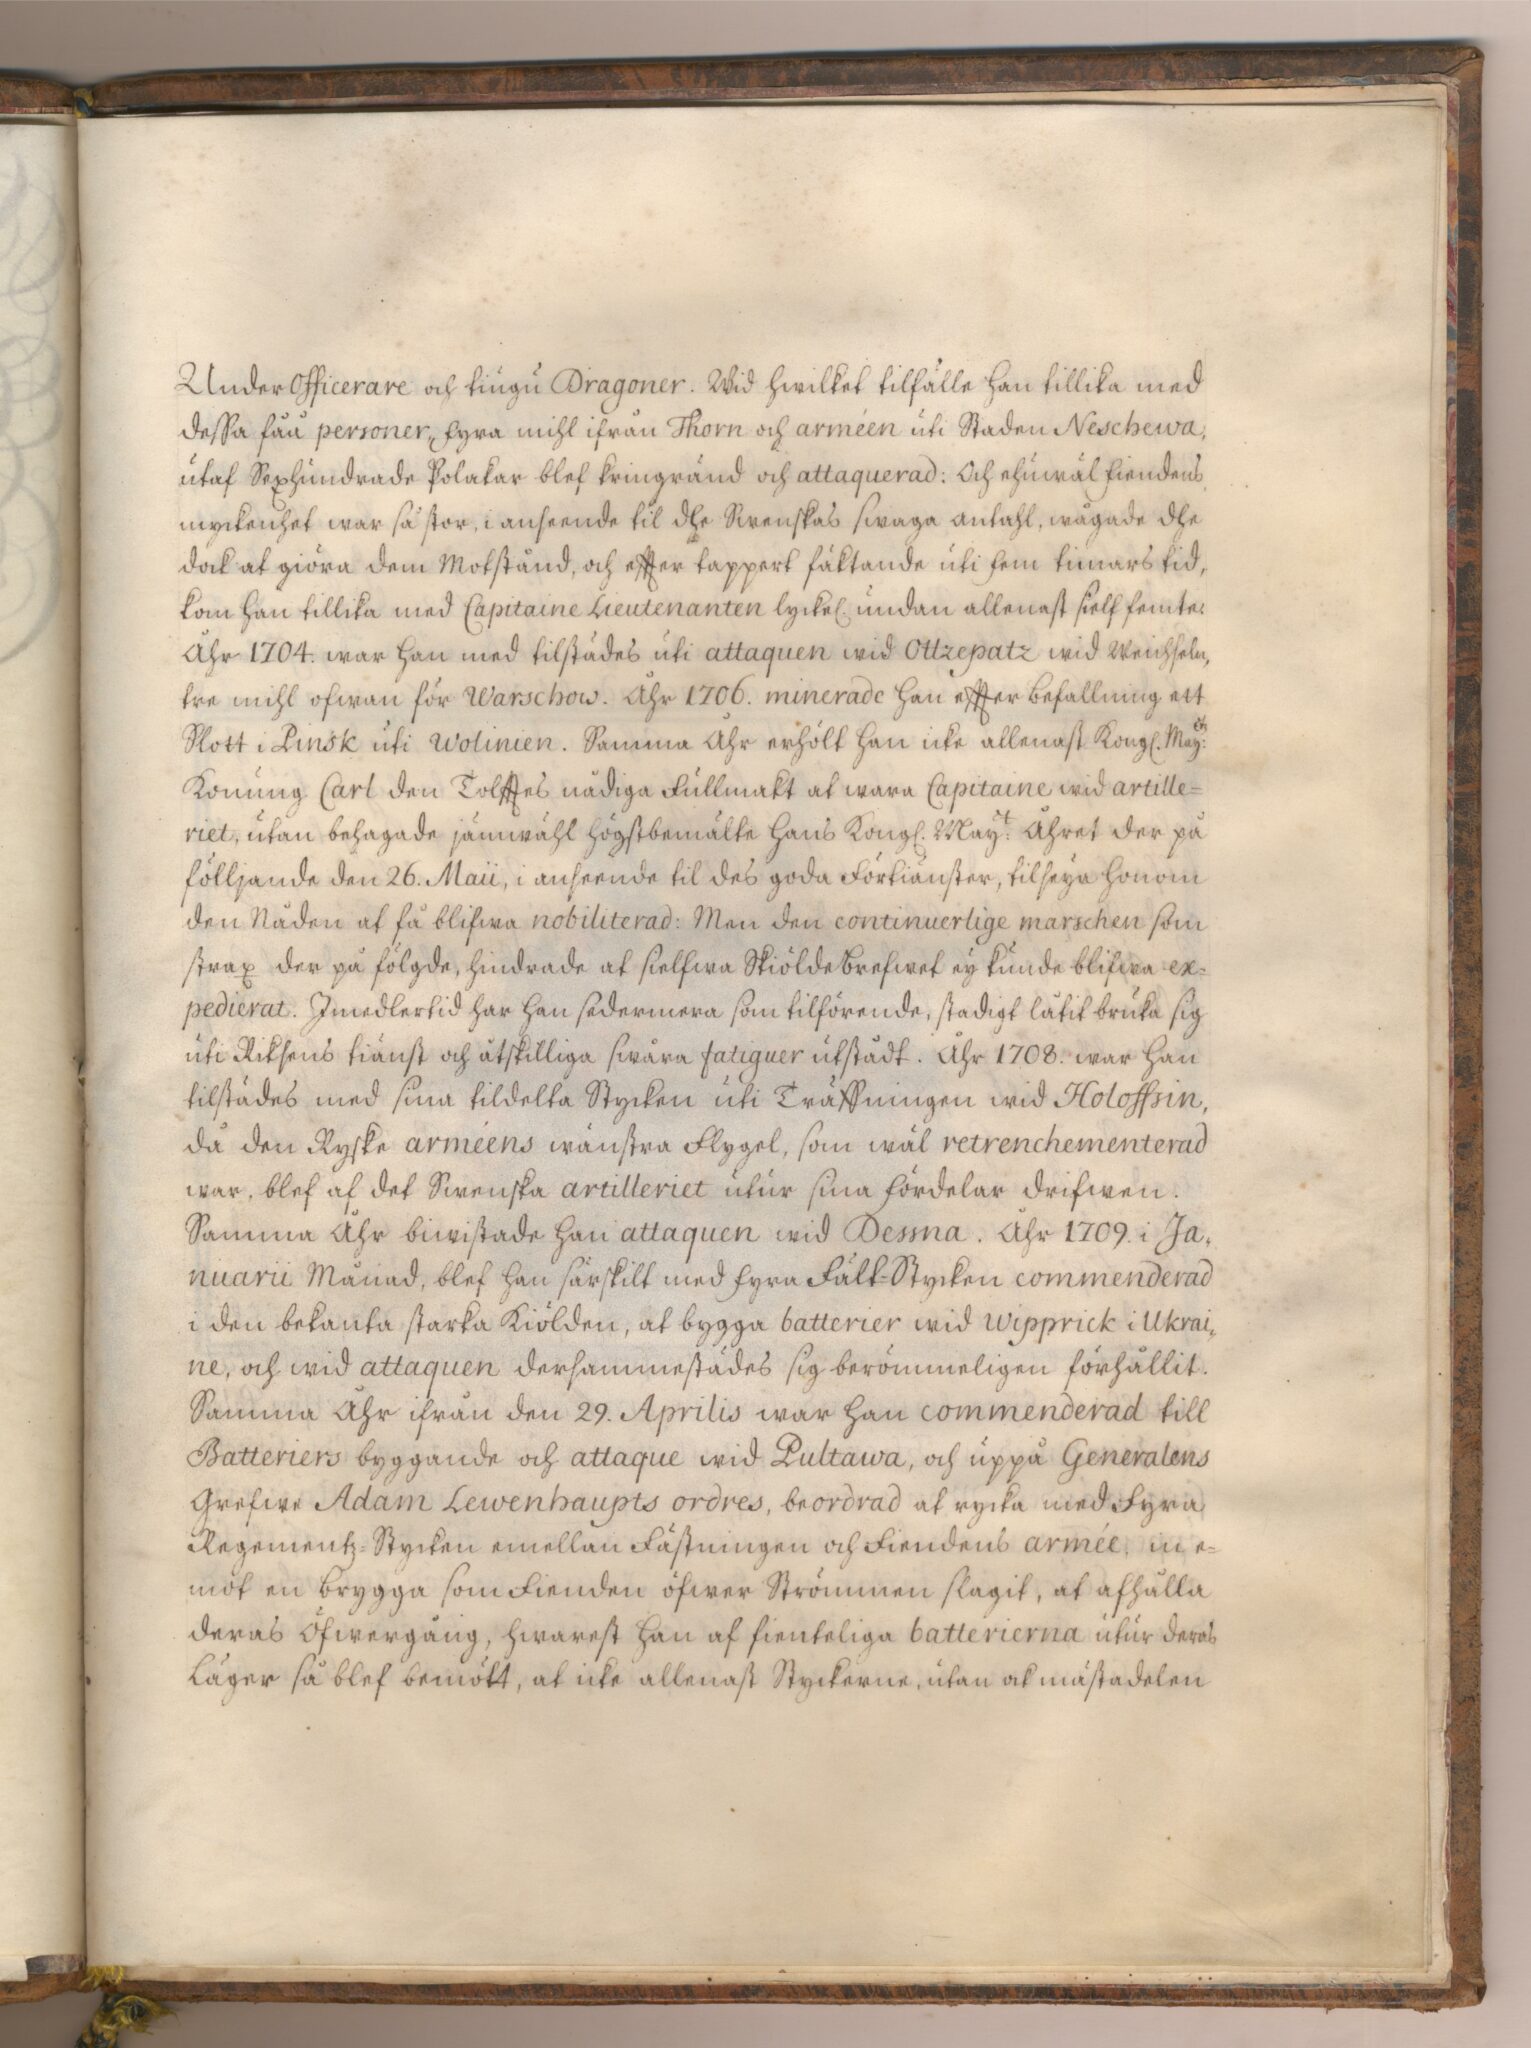 Under Officerare och tiugu Dragoner. Wid hwilket tilfälle han tillika med
dessa fåå personer, fyra mihl ifrån Thorn och arméen uti Staden Neschewa,
utaf Sexhundrade Polakar blef kringränd och attaquerad: Och ehuwäl Fiendens
myckenhet war så stor, i anseende til dhe Swenskas swaga antahl, wågade dhe
dock at giöra dem Motstånd, och effter tappert fäktande uti fem timars tid,
kom han tillika med Capitaine Lieutenanten lyckel. undan allenast sielf femte.
Åhr 1704. war han med tilstädes uti attaquen wid Ottzepatz wid Weichseln,
tre mihl ofwan för Warschow. Åhr 1706. minerade han effter befallning ett
Slott i Pinsk uti Wolinien. Samma Åhr erhölt han icke allenast Kongl. May:tz
Konung Carl den Tolfftes nådiga Fullmakt at wara Capitaine wid artille=
riet, utan behagade jämwähl högstbemälte Hans Kongl. May:t Åhret der på
följande den 26. Maii, i anseende til des goda Förtiänster, tilseya honom
den Nåden at få blifwa nobiliterad: Men den continuerlige marschen som
strax der på fölgde, hindrade at sielfwa Skiöldebrefwet ey kunde blifwa ex=
pedierat. Imedlertid har han sedermera som tilförende, stadigt låtit bruka sig
uti Riksens tiänst och åtskilliga swåra fatiguer utstådt. Åhr 1708. war han
tilstädes med sina tildelta Stycken uti Träffningen wid Holoffsin,
då den Ryske arméens wänstra Flygel, som wäl retrenchementerad
war, blef af det Swenska artilleriet utur sina fördelar drifwen.
Samma Åhr biwistade han attaquen wid Dessna. Åhr 1709. i Ja=
nuarii Månad, blef han särskilt med fyra Fält=Stycken commenderad
i den bekanta starka Kiölden, at bygga batterier wid Wipprick i Ukrai=
ne, och wid attaquen dersammestädes sig berömmeligen förhållit.
Samma Åhr ifrån den 29. Aprilis war han commenderad till
Batteriers byggande och attaque wid Pultawa, och uppå Generalens
Grefwe Adam Lewenhaupts ordres, beordrad at rycka med Fyra
Regementz=Stycken emellan Fästningen och Fiendens armée, in e=
mot en brygga som Fienden öfwer Strömmen slagit, at afhålla
deras Öfwergång, hwarest han af fienteliga batterierna utur deras
Läger så blef bemött, at icke allenast Styckerne, utan ok mästadelen